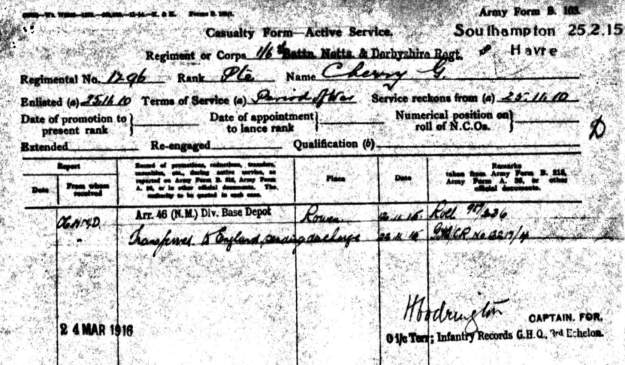 Army Form B. 103.
Casualty Form—Active Service.
Southampton 25.2.15
Havre
Regiment or Corps 1/6th Battn. Notts. & Derbyshire Regt.
Regimental No. 1296 Rank Pte Name Cherry G.
Enlisted (a) Terms of Service (a) Period of War Service reckons from (a)
Date of promotion to present rank
Date of appointment to lance rank
Numerical position on roll of N.C.Os.
D
Extended Re-engaged Qualification (b)
Report
Date
From whom received
Record of promotions, reductions, transfers, casualties, etc., during active service, as reported on Army Form B. 213, Army Form A. 36, or in other official documents. The authority to be quoted in each case.
Place
Date
Remarks taken from Army Form B. 213, Army Form A. 36, or other official documents.
Arr. 46 (N.M.) Div. Base Depot Rouen Roll
Transferred to England, pending discharge
24 MAR 1916
CAPTAIN. FOR.
O i/c Terr; Infantry Records G.H.Q. 3rd Echelon.